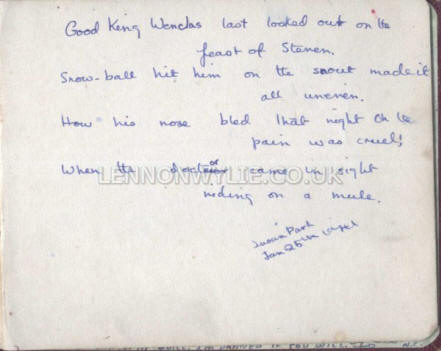 Good King Wenclas last looked out on the
feast of Steven.
Snow-ball hit him on the snout made it
all uneven.
How his nose bled that night Oh the
pain was cruel!
When the doctor came in sight
riding on a mule.
LENNONWYLIE.CO.UK
Park
Jan 25th
IF YOU WILL